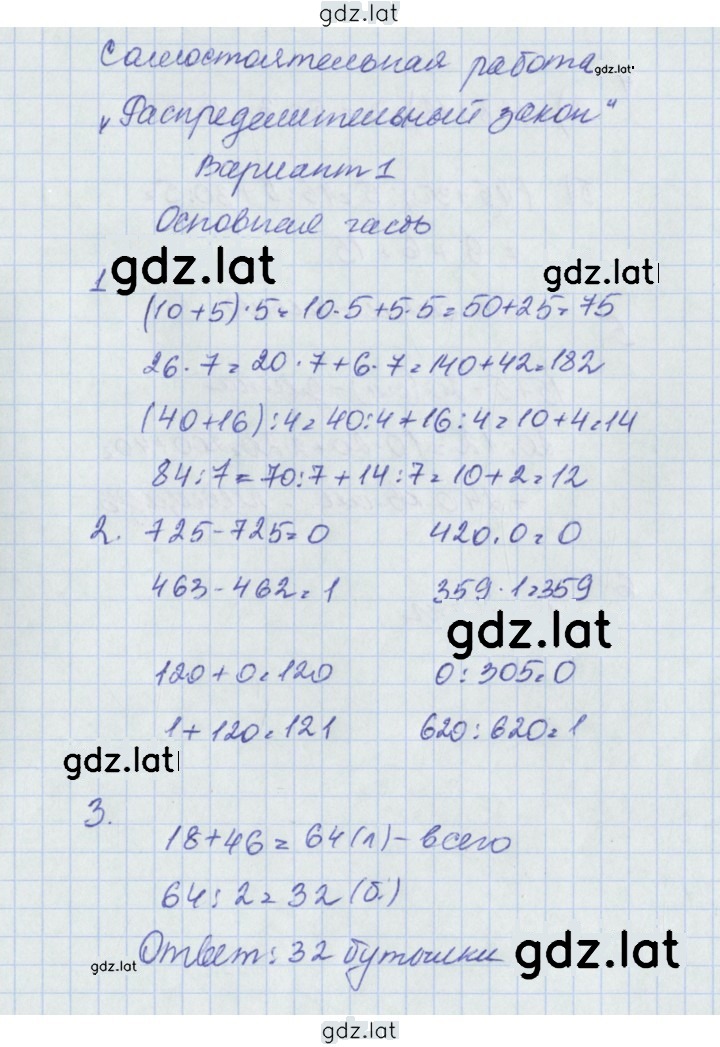 gdz.lat
Самостоятельная работа gdz.lat
„Распределительный закон"
Вариант 1
Основная часть
gdz.lat gdz.lat
1 (10+5)·5=10·5+5·5=50+25=75
26·7=20·7+6·7=140+42=182
(40+16):4=40:4+16:4=10+4=14
84:7=70:7+14:7=10+2=12
2. 725-725=0 420·0=0
463-462=1 359·1=359
gdz.lat
120+0=120 0:305=0
1+120=121 620:620=1
gdz.lat
3.
18+46=64(л)-всего
64:2=32(б.)
Ответ: 32 бутылки gdz.lat
gdz.lat
gdz.lat